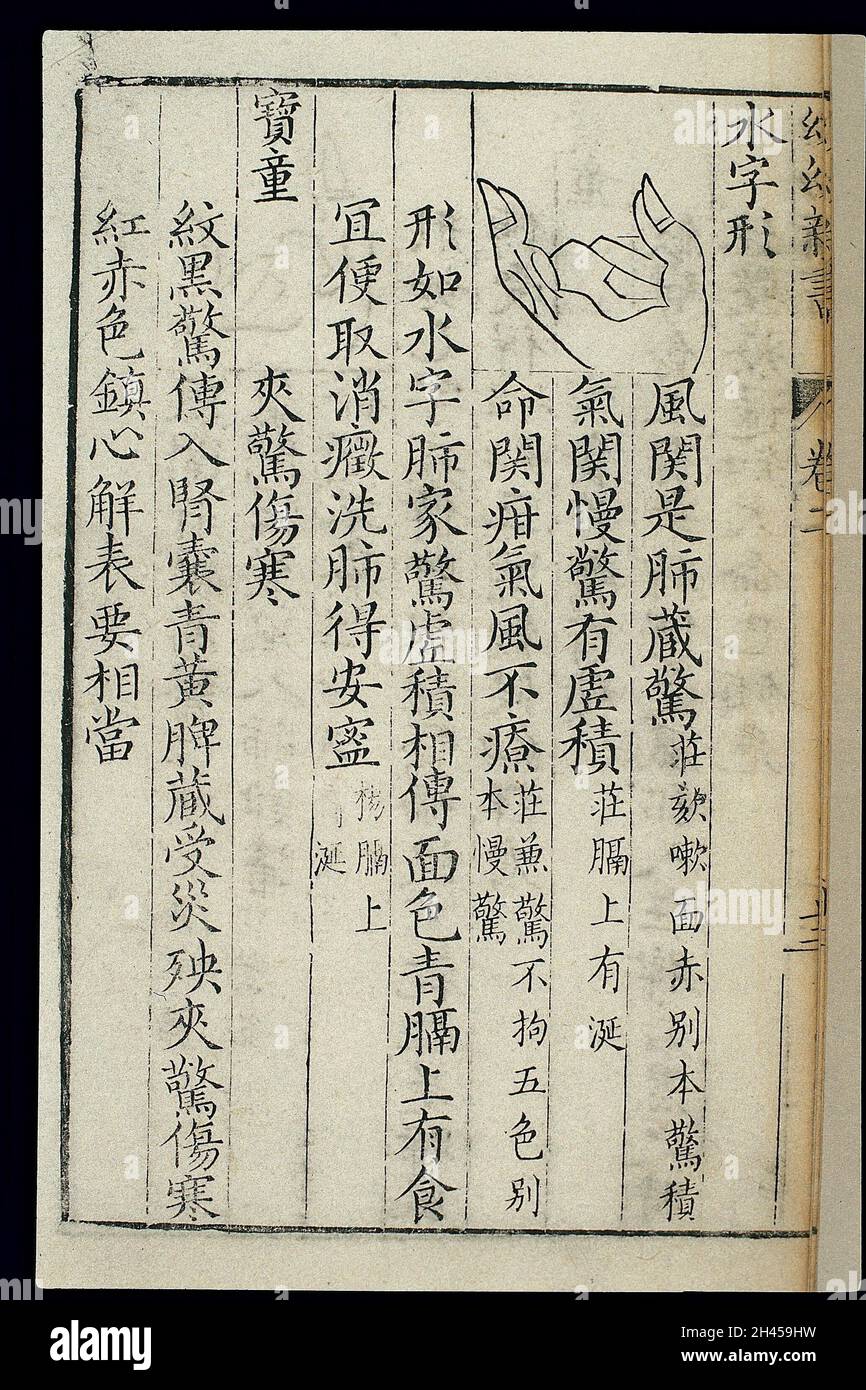 幼幼新書 卷二
水字形
風関是肺蔵驚 荘欬嗽面赤别本驚積
氣関慢驚有虛積 荘膈上有涎
命関疳氣風不療 荘兼驚不拘五色别
本慢驚
形如水字肺家驚虛積相傳面色青膈上有食
宜便取消癥洗肺得安寧 楊膈上
涎
寶童
夾驚傷寒
紋黒驚傳入腎囊青黄脾蔵受災殃夾驚傷寒
紅赤色鎮心解表要相當
alamy
Image ID: 2H459HW
www.alamy.com